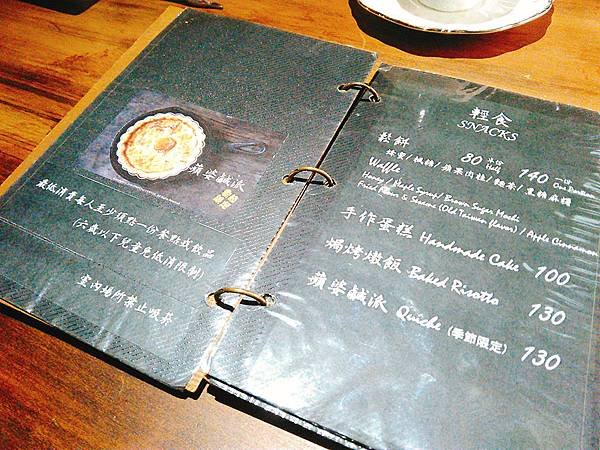 蘋婆鹹派
最低消費每人至少須點一份餐點或飲品
(六歲以下兒童免低消限制)
室內場所禁止吸菸
輕食
SNACKS
鬆餅 80 Half 140 One Portion
蜂蜜/楓糖/蘋果肉桂/麵茶/黑糖麻糬
Waffle
Honey / Maple Syrup / Brown Sugar Mochi
Fried Flour & Sesame (Old Taiwan flavor) / Apple Cinnamon
手作蛋糕 Handmade Cake 100
焗烤燉飯 Baked Risotto 130
蘋婆鹹派 Quiche (季節限定) 130